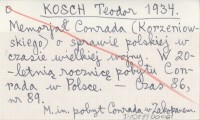 KOSCH Teodor 1934.
Memorjał Conrada (Korzeniow-
skiego) o sprawie polskiej w
czasie wielkiej wojny. W 20-
letnią rocznicę pobytu Con-
rada w Polsce. — Czas 86,
nr 89.
M. in. pobyt Conrada w Zakopanem.